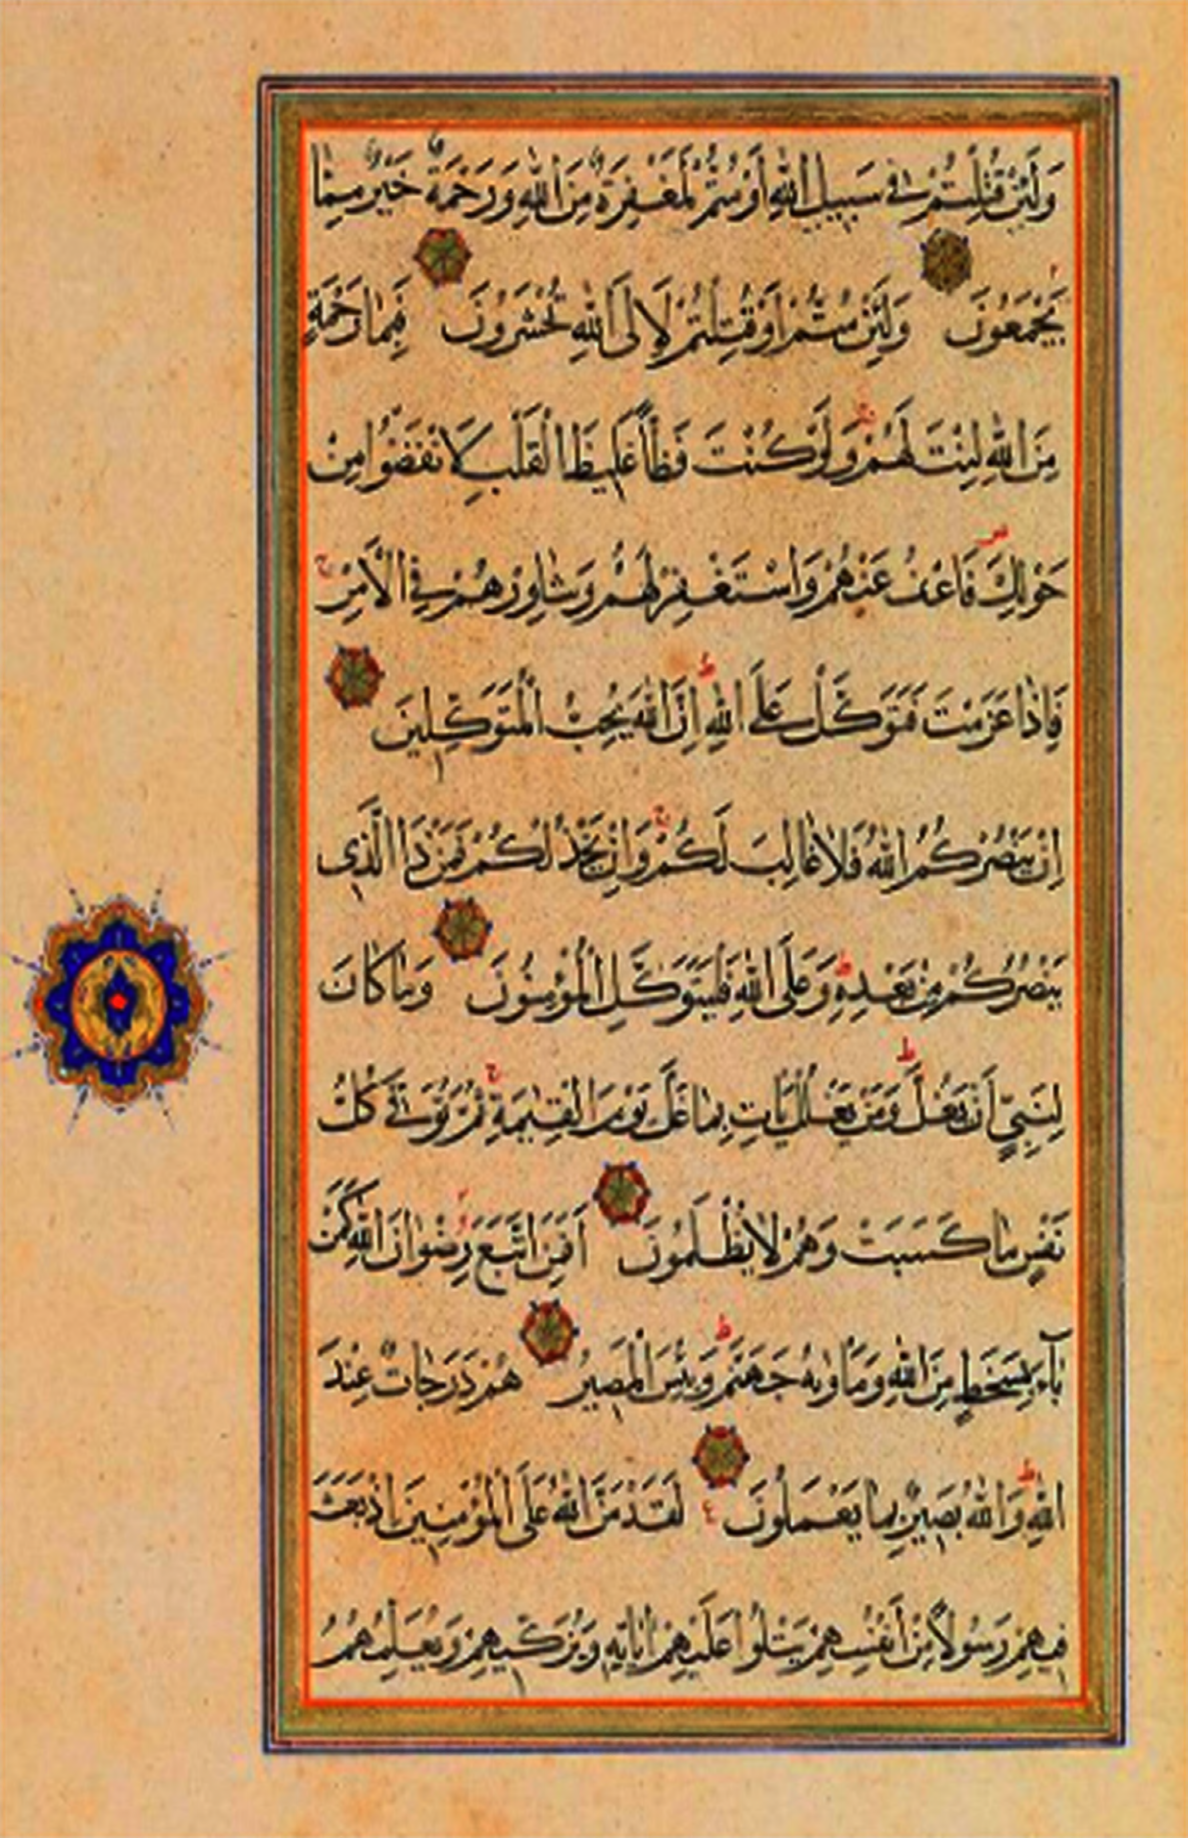 وَلَئِنْ قُتِلْتُمْ فِي سَبِيلِ اللَّهِ أَوْ مُتُّمْ لَمَغْفِرَةٌ مِنَ اللَّهِ وَرَحْمَةٌ خَيْرٌ مِمَّا
يَجْمَعُونَ وَلَئِنْ مُتُّمْ أَوْ قُتِلْتُمْ لَإِلَى اللَّهِ تُحْشَرُونَ فَبِمَا رَحْمَةٍ
مِنَ اللَّهِ لِنْتَ لَهُمْ وَلَوْ كُنْتَ فَظًّا غَلِيظَ الْقَلْبِ لَانْفَضُّوا مِنْ
حَوْلِكَ فَاعْفُ عَنْهُمْ وَاسْتَغْفِرْ لَهُمْ وَشَاوِرْهُمْ فِي الْأَمْرِ
فَإِذَا عَزَمْتَ فَتَوَكَّلْ عَلَى اللَّهِ إِنَّ اللَّهَ يُحِبُّ الْمُتَوَكِّلِينَ
إِنْ يَنْصُرْكُمُ اللَّهُ فَلَا غَالِبَ لَكُمْ وَإِنْ يَخْذُلْكُمْ فَمَنْ ذَا الَّذِي
يَنْصُرُكُمْ مِنْ بَعْدِهِ وَعَلَى اللَّهِ فَلْيَتَوَكَّلِ الْمُؤْمِنُونَ وَمَا كَانَ
لِنَبِيٍّ أَنْ يَغُلَّ وَمَنْ يَغْلُلْ يَأْتِ بِمَا غَلَّ يَوْمَ الْقِيٰمَةِ ثُمَّ تُوَفَّى كُلُّ
نَفْسٍ مَا كَسَبَتْ وَهُمْ لَا يُظْلَمُونَ أَفَمَنِ اتَّبَعَ رِضْوَانَ اللَّهِ كَمَنْ
بَآءَ بِسَخَطٍ مِنَ اللَّهِ وَمَأْوٰىهُ جَهَنَّمُ وَبِئْسَ الْمَصِيرُ هُمْ دَرَجَاتٌ عِنْدَ
اللَّهِ وَاللَّهُ بَصِيرٌ بِمَا يَعْمَلُونَ لَقَدْ مَنَّ اللَّهُ عَلَى الْمُؤْمِنِينَ إِذْ بَعَثَ
فِيهِمْ رَسُولًا مِنْ أَنْفُسِهِمْ يَتْلُوا عَلَيْهِمْ اٰيَاتِهِ وَيُزَكِّيهِمْ وَيُعَلِّمُهُمُ